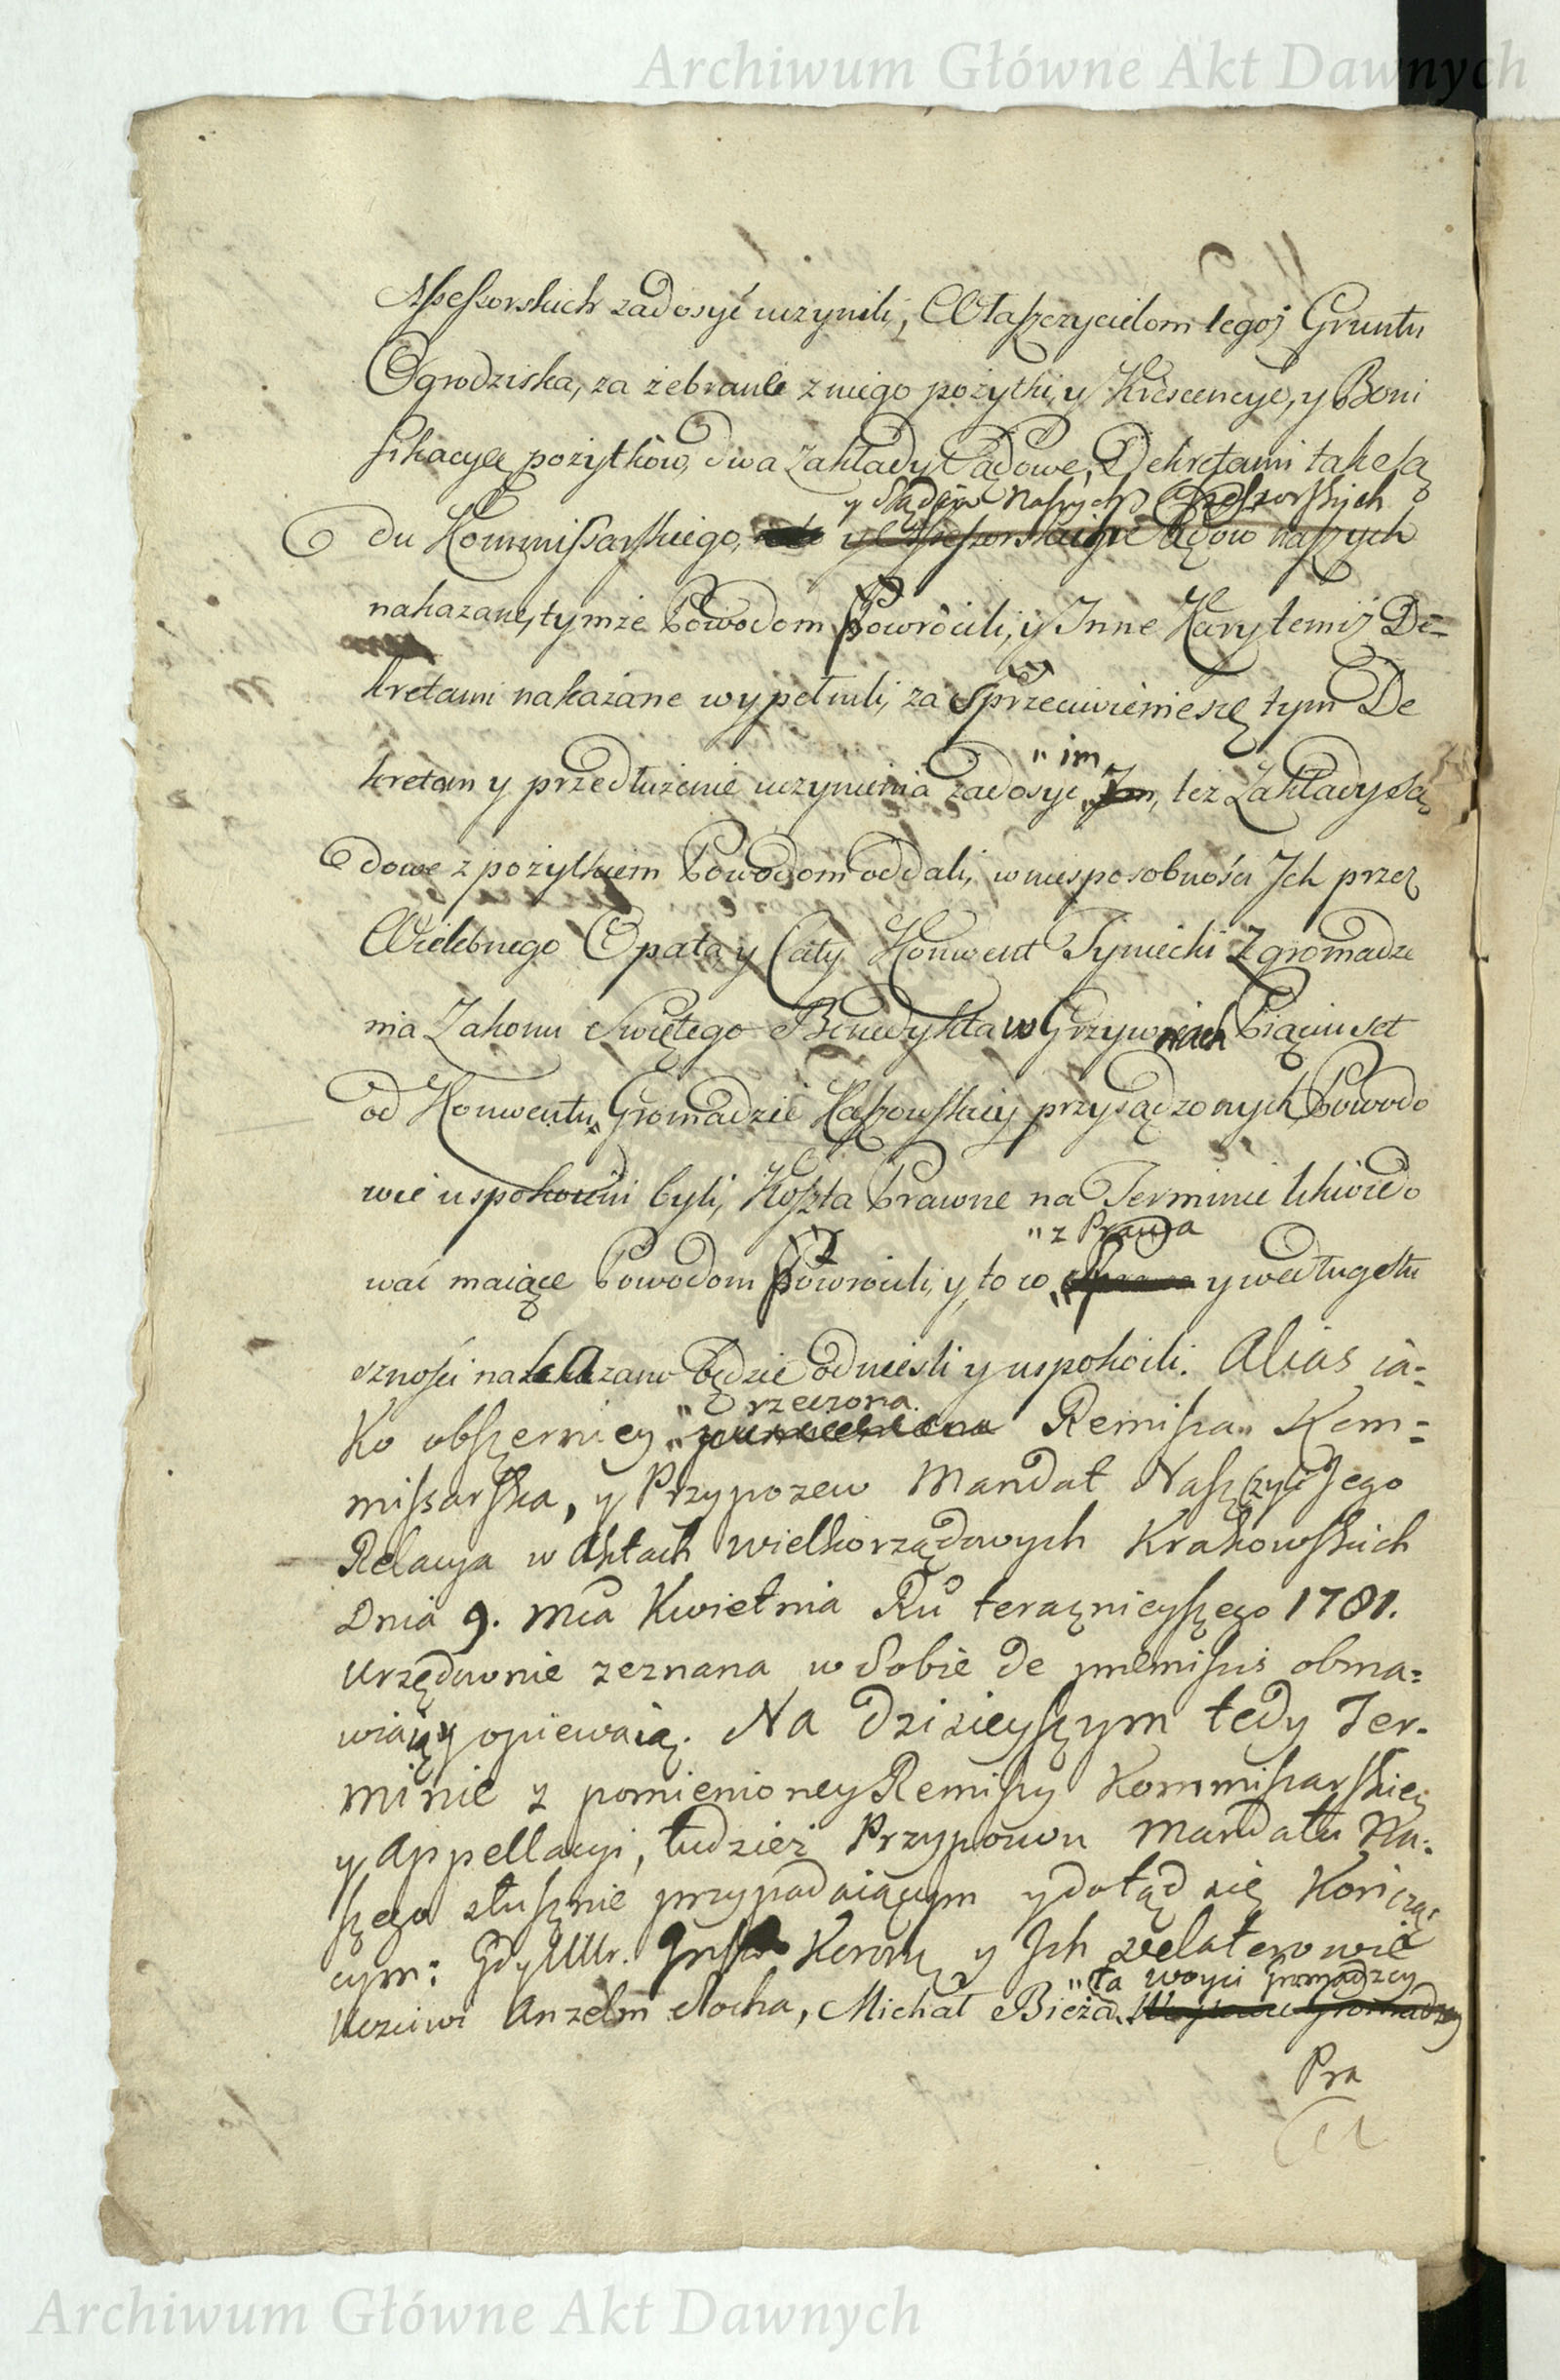 Archiwum Główne Akt Dawnych
Assessorskich zadosyć uczynili, Właszczycielom tegoż Gruntu
Ogrodziska, za zebrane z niego pożytki, y Krescencye, y Boni
fikacye pożytków, dwa Zakłady Sądowe, Dekretami tak Są
y Sądów Naszych Assessorskich
du Kommissarskiego, y Assessorskich Sądów naszych
nakazane, tymże Powodom Powrócili, y Inne Rzeczy temiż De=
kretami nakazane wypełnili, za Sprzeciwienie się tym De
" im
kretom y przedłużenie uczynienia zadosyć "Im, też Zakłady Są
dowe z pożytkiem Powodom oddali, w niesposobności Ich przez
Wielebnego Opata y Cały Konwent Tyniecki Zgromadze
nia Zakonu Swiętego Benedykta w Grzywnach Pięciuset
od Konwentu, Gromadzie Kaszowskiey przysądzonych, Powodo
wie uspokoieni byli, Koszta Prawne na Terminie likwido
" z Prawa
wać maiące Powodom Powrócili, y to co " y według Słu
szności nakazano będzie odnieśli y uspokoili. Alias ia=
" rzeczona
ko obszerniey " Remissa" Kom=
missarska, y Przypozew Mandat Nasz, czyli Jego
Relacya w Aktach wielkorządowych Krakowskich
Dnia 9. Mca Kwietnia Ru teraznieyszego 1781.
Urzędownie zeznana w Sobie de praemissis obma=
wiaią y opiewaią. Na Dzisieyszym tedy Ter-
minie z pomienioney Remissy Kommissarskiey
y Appellacyi, tudzież Przypozwu Mandatu Na=
szego słusznie przypadaiącym y dotąd się Kończą=
cym: Gdy UUr. Instor Korony y Ich Delatorowie
" ta Woyci Gromadzcy
Uczciwi Anzelm Socha, Michał Bieża" Woyciowie Gromadzcy
Pra
Archiwum Główne Akt Dawnych